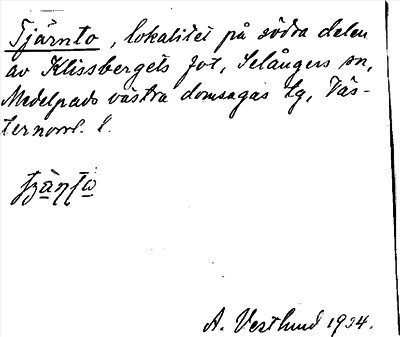 Tjärnto, lokalitet på södra delen
av Klissbergets fot, Selångers sn,
Medelpads västra domsagas tg, Väs-
ternorrl. l.
A. Vestlund 1934.